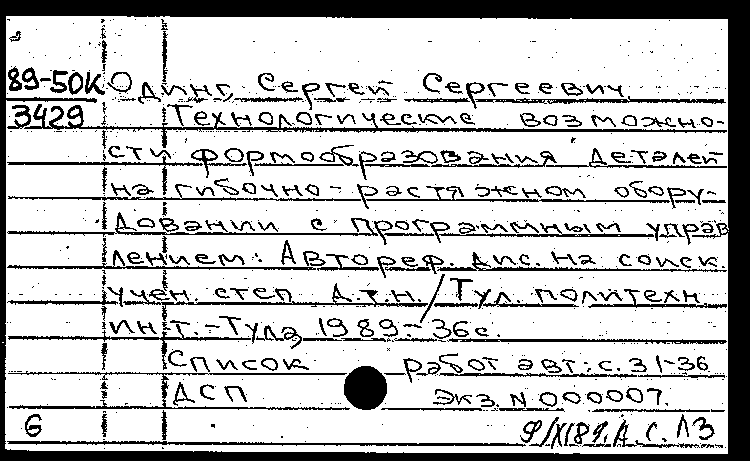 89-50К Одинг, Сергей Сергеевич
3429 Технологические возможно-
сти формообразования деталей
на гибочно-растяжном обору-
довании с программным управ
лением: Автореф. дис. на соиск.
учен. степ д.т.н./Тул. политехн
ин-т.-Тула, 1989.-36с.
Список работ авт.: с.31-36
ДСП экз. N 000007.
G 9/XI89. А. С. ЛЗ